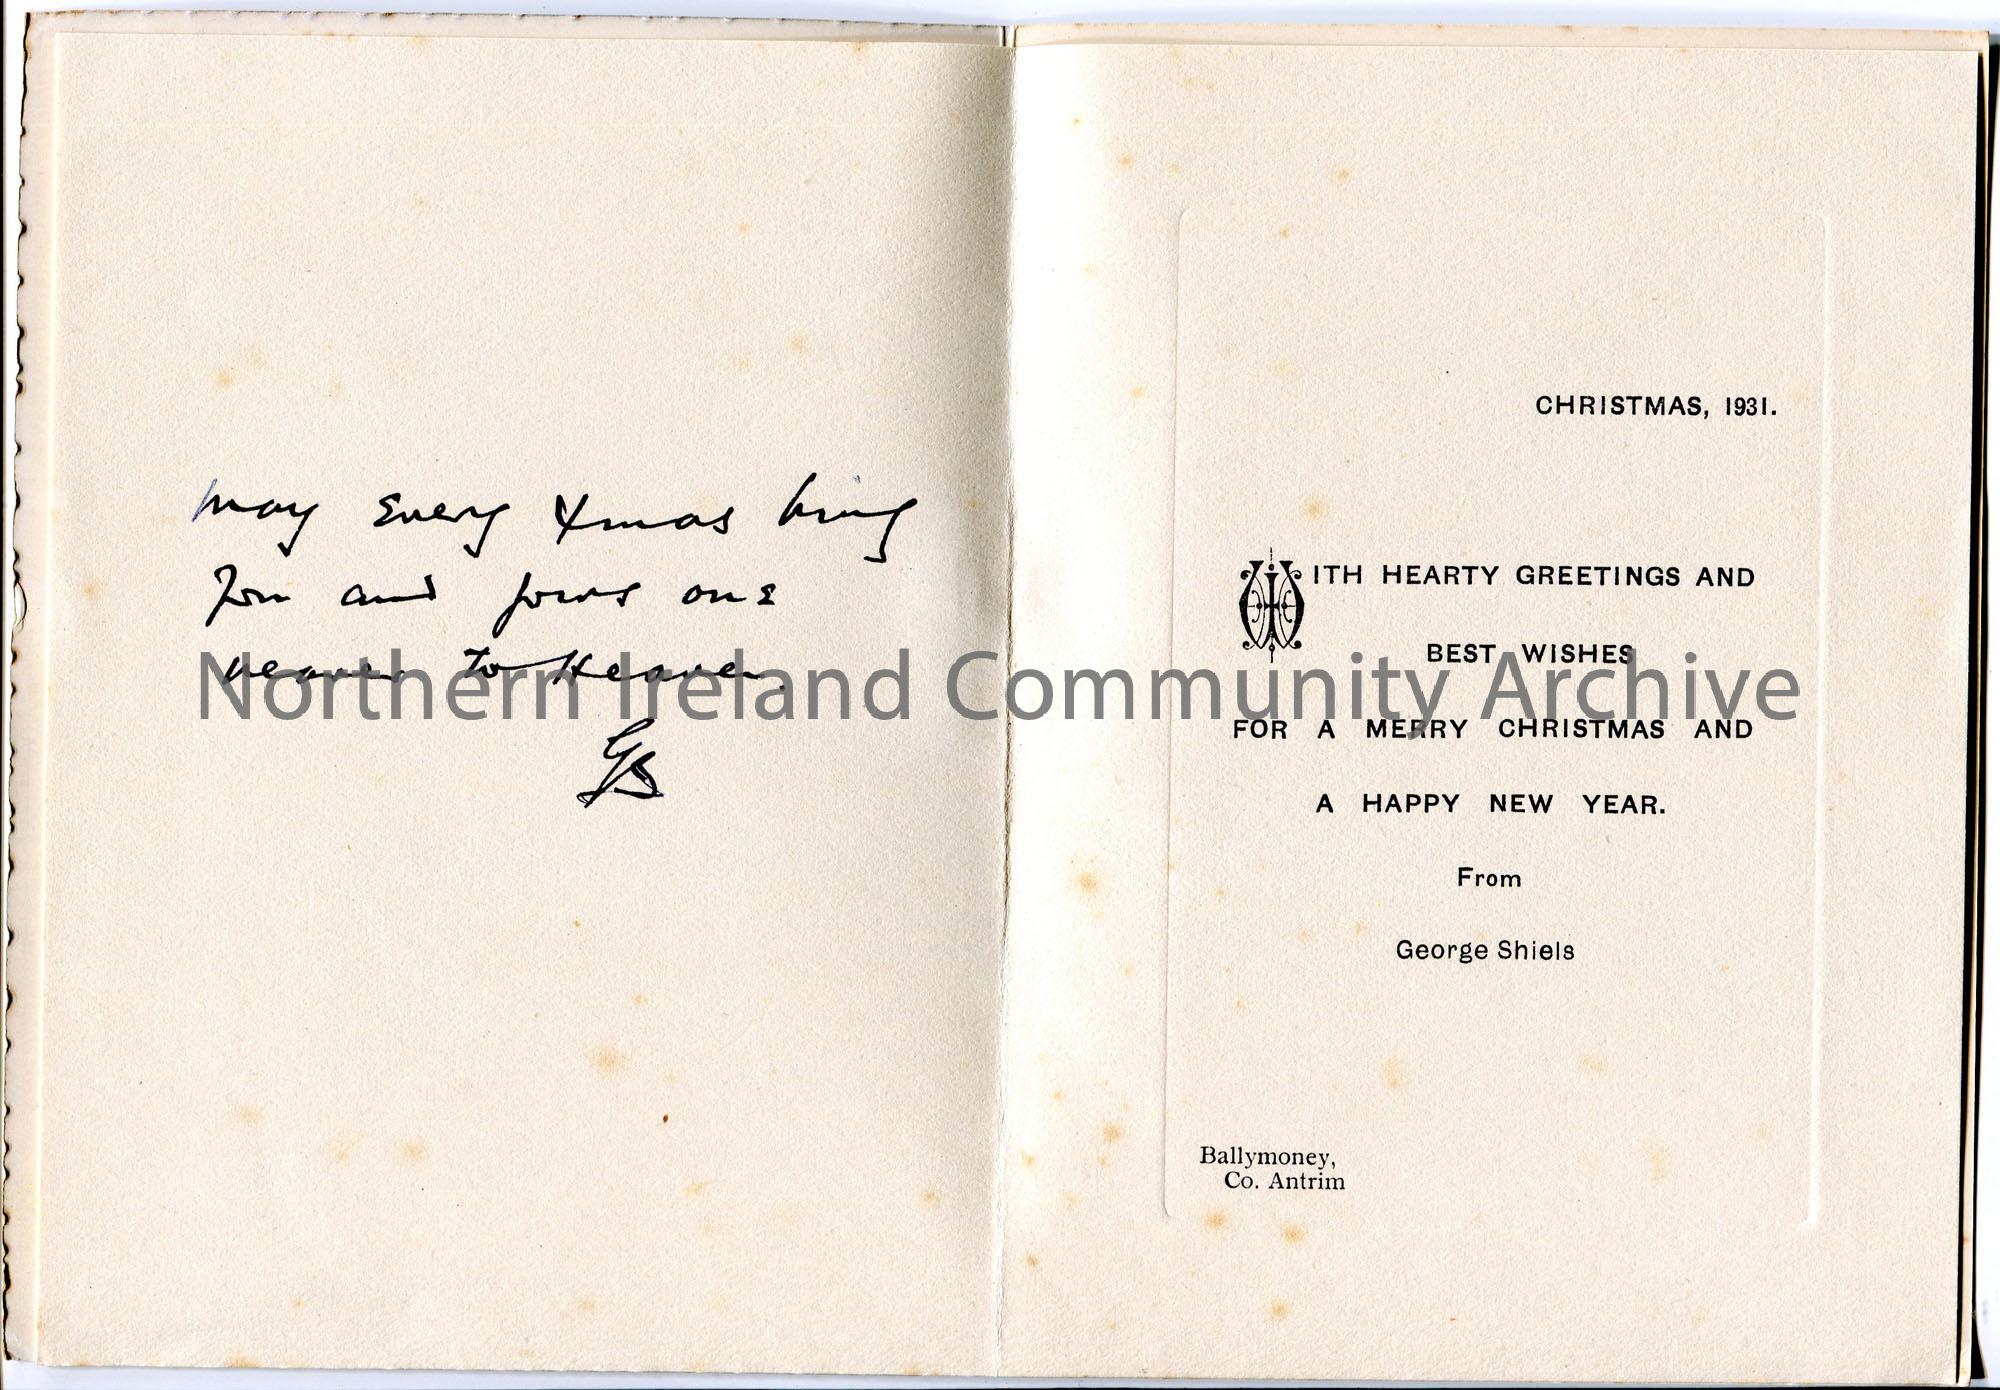 May Every Xmas bring
you and yours one
nearer to Heaven.
GS
CHRISTMAS, 1931.
WITH HEARTY GREETINGS AND
BEST WISHES
FOR A MERRY CHRISTMAS AND
A HAPPY NEW YEAR.
From
George Shiels
Ballymoney,
Co. Antrim
Northern Ireland Community Archive